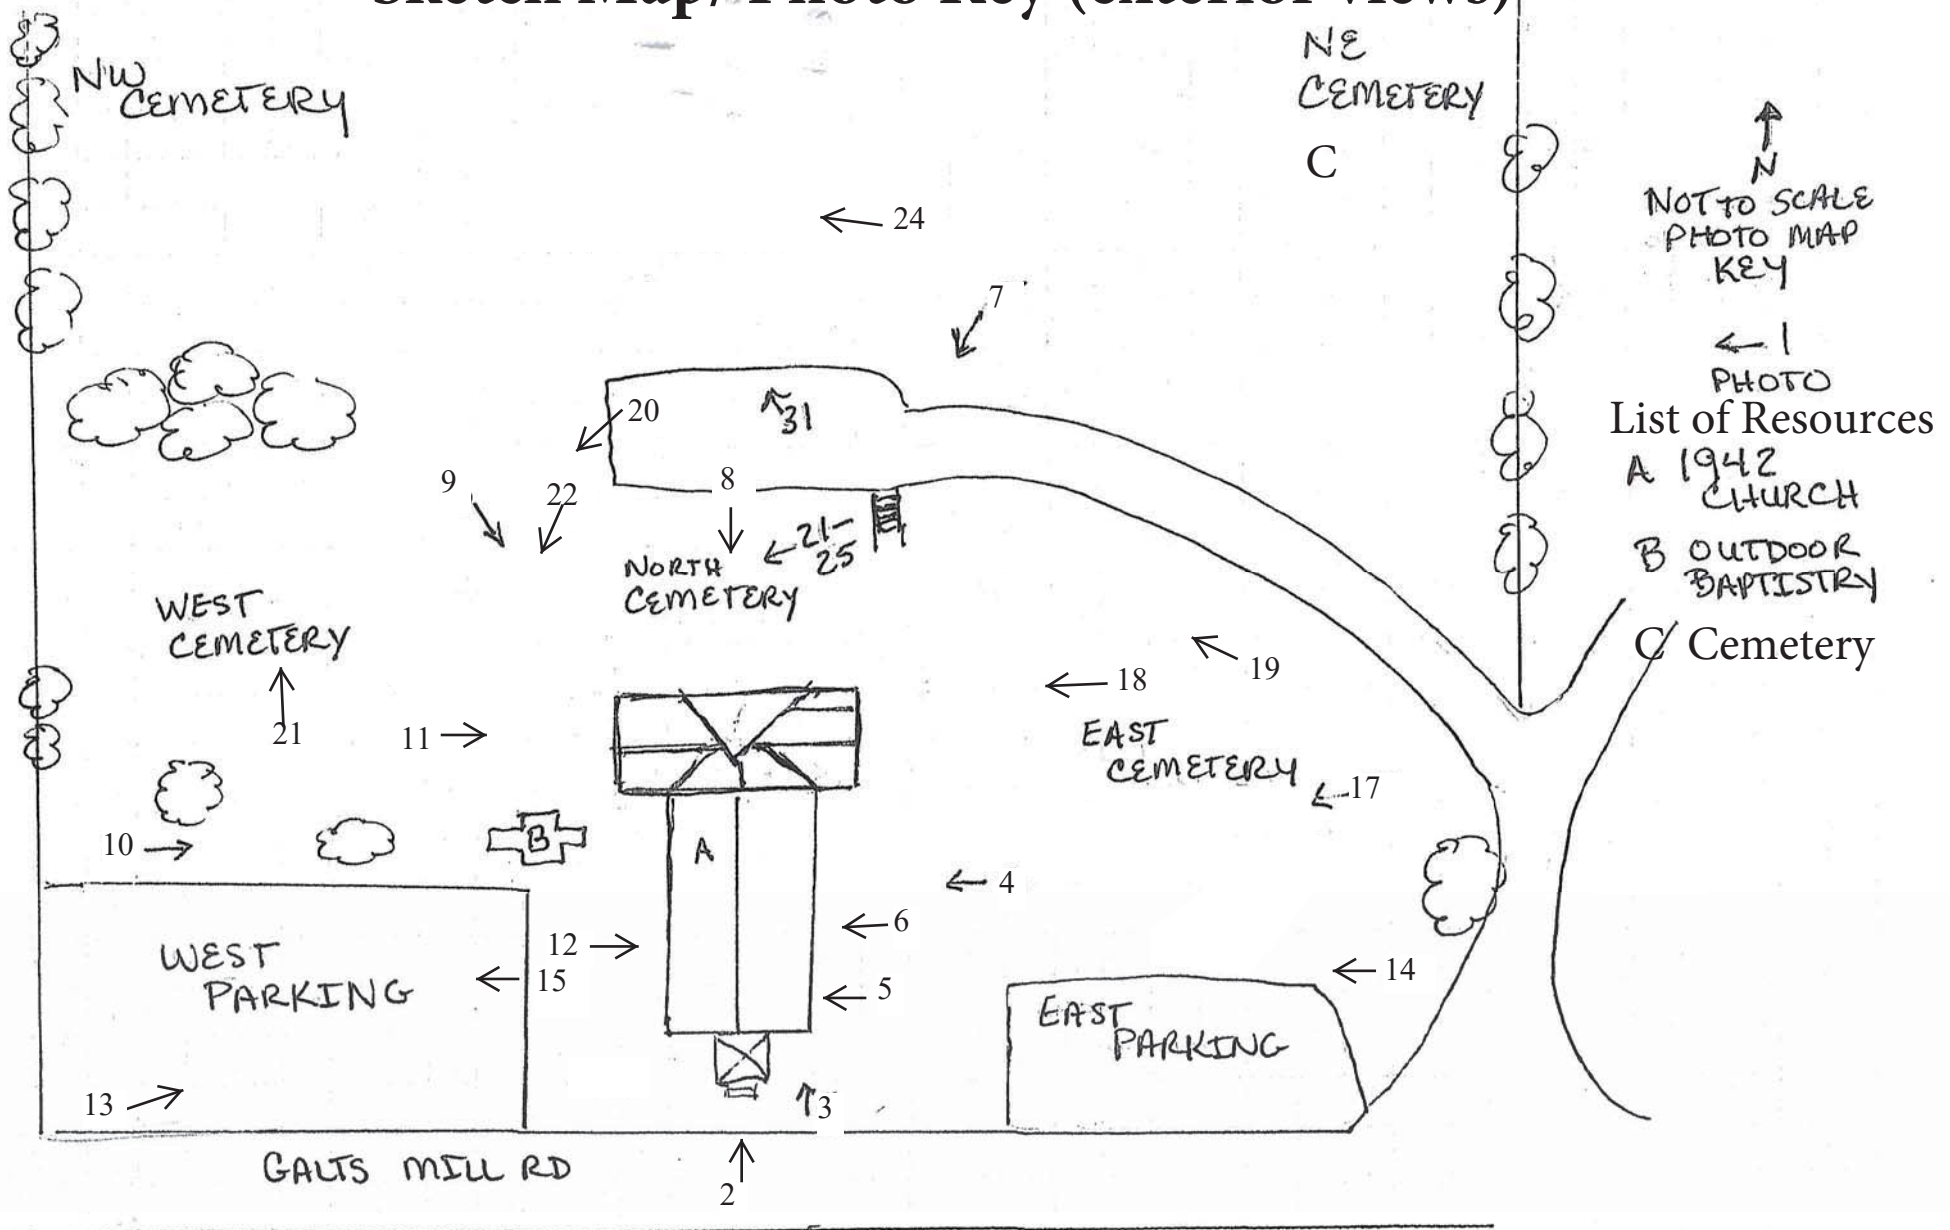 Sketch Map/ Photo Key (exterior views)
NW
CEMETERY
NE
CEMETERY
C
N
NOT TO SCALE
PHOTO MAP
KEY
24
7
← 1
PHOTO
List of Resources
A 1942
CHURCH
B OUTDOOR
BAPTISTRY
C Cemetery
20
31
9
22
8
21-
25
NORTH
CEMETERY
WEST
CEMETERY
21
11
18
19
EAST
CEMETERY
17
10
B
A
4
6
12
15
5
14
WEST
PARKING
EAST
PARKING
13
3
GALTS MILL RD
2